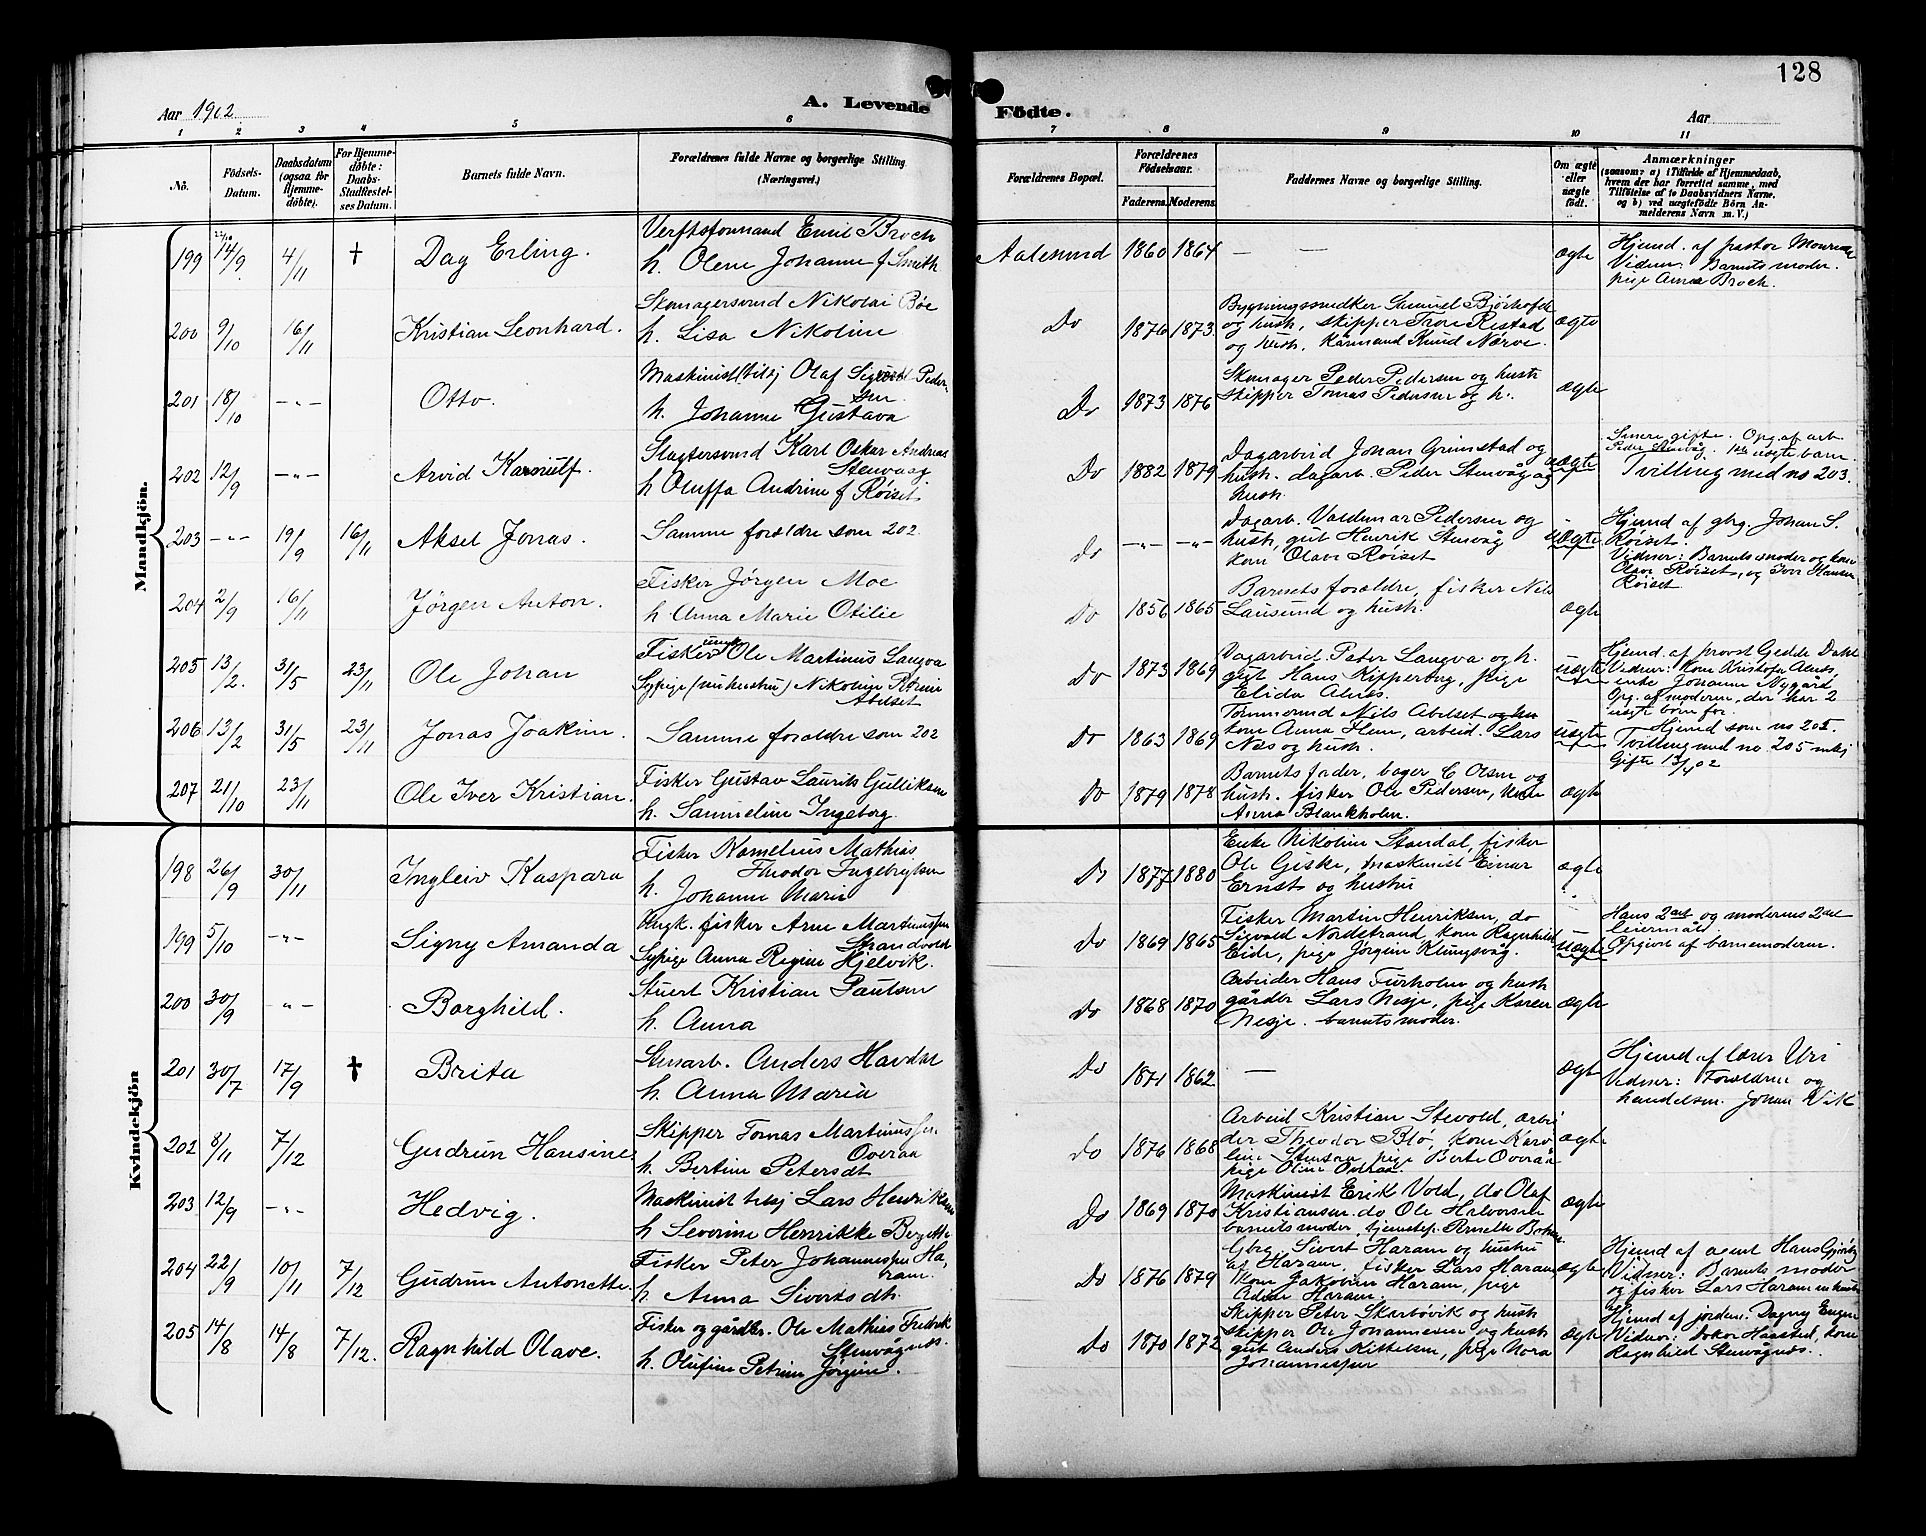 128
Aar 1902
A. Levende
Födte.
Aar
1 2 3 4 5 6 7 8 9 10 11
Nö.
Födsels-
Datum.
Daabsdatum
(ogsaa för
Hjemme-
döbte).
For Hjemme-
döbte:
Daabs-
Stadfæstel-
ses Datum.
Barnets fulde Navn.
Forældrenes fulde Navne og borgerlige Stilling
(Næringsvei.)
Forældrenes Bopæl.
Forældrenes
Födselsaar.
Faderens.
Moderens.
Faddernes Navne og borgerlige Stilling.
Om ægte
eller
uægte
födt.
Anmærkninger
(saasom: a) i Tilfælde af Hjemmedaab,
hvem der har forrettet samme, med
Tilföielse af to Daabsvidners Navne,
og b) ved uægtefödte Börn An-
melderens Navn m. V.)
Mandkjön.
199 14/9 4/11 † Dag Erling.
Verftsformand Emil Broch
h. Olene Johanne f Smith
Aalesund 1860 1864 — ægte
Hjemd. af pastor
Vidner: Barnets moder.
pige Anna Broch.
200 9/10 16/11 Kristian Leonhard.
Skomagersvend Nikolai Bøe
h. Lisa Nikoline
Do 1876 1873
Bygningssnedker Samuel
og hustr, skipper Tron Ristad
og hustr. Kårmand Knud Nærve.
ægte
201 18/10 -"- Otto.
Maskinist tilsj Olaf Sigurd Peder-
sen.
h. Johanne Gustava
Do 1873 1876
Skomager Peder Pedersen og hustr
skipper Tomas Pedersen og h.
ægte
202 12/9 -"- Arvid Karnulf.
Slagtersvend Karl Oskar Andreas
Stenvaag
h Oluffa Andrine f Röiset
Do 1882 1879
Dagarbeid Johan Grimstad og
hustr. dagarb. Peder Stenvåg og
hustr.
uægte
Senere gifte. Opg. af arb.
Peder Stenvåg. 1ste uægte barn.
Tvilling med no 203.
203 -"- 19/9 16/11 Aksel Jonas.
Samme forældre som 202
do -"- -"-
Dagarb. Valdemar Pedersen og
hustr, gut Henrik Stenvåg
kone Olave Röiset
uægte
Hjemd af gbrg. Johan S.
Röiset.
Vidner: Barnets moder og kone
Olave Röiset, og Iver Hansen
Röiset
204 2/9 16/11 Jörgen Anton.
Fisker Jörgen Moe
h Anna Marie Otilie
Do 1856 1865
Barnets forældre, fisker Nils
Lausund og hustr.
ægte
205 13/2. 31/5 23/11 Ole Johan
Fisker ungk Ole Martinus Langva
Sypige (nu hustru) Nikoline Petrine
Abelset
Do 1873 1869
Dagarbeid. Peter Langva og h.
gut Hans Kipperberg, pige
Elida Alnes.
uægte
Hjemd. af provst Gedde Dahl
Vidner: Kone Kristofer Alnes,
enke Johanne Nygård
Opg. af moderen, der har 2
uægte börn för
206 13/2 31/5 23/11 Jonas Joakim.
Samme forældre som 202
Do 1863 1869
Tømmermd Nils Abelset og hu
kone Anna Hem, arbeid. Lars
Næs og hustr.
uægte
Hjemd som no 205.
Tvilling med no 205
Gifte 13/4 02
207 21/10 23/11 Ole Iver Kristian.
Fisker Gustav Laurits Gulliksen
h. Sanneline Ingeborg.
Do 1879 1878
Barnets fader, bager C Olsen og
hustr. fisker Ole Pedersen, kone
Anna Blankholm.
ægte
Kvindekjön
198 26/9 30/11 Ingleiv Kaspara
Fisker Kornelius Mathias
Theodor Ingebrigtsen
h. Johanne Marie
Do 1877 1880
Enke Nikoline Standal, fisker
Ole Giske, maskinist Einar
Ernst og hustru
ægte
199 5/10 -"- Signy Amanda
Ungk. fisker Arne Martinussen
Strandvold
Sypige Anna Regine Hjelvik.
Do 1869 1865
Fisker Martin Henriksen, do
Sigvald Nordstrand, kone Ragnhild
Eide, pige Jörgine Klungsvåg.
uægte
Hans 2det og moderens 2det
leiermål.
Opgivet af barnemoderen.
200 30/9 -"- Borghild.
Stuert Kristian Paulsen
h. Anna
do 1868 1870
Arbeider Hans Furholm og hustr
gårdbr Lars Nesje, pige Karen
Nesje. barnets moder.
ægte
201 30/7 17/9 † Brita
Stenarb. Anders Havdal
h. Anna Maria
Do 1871 1862 — ægte
Hjemd. af lærer Uri
Vidner: Forældrene og
handelsm. Johan Vik
202 8/11 7/12 Gudrun Hansine.
Skipper Tomas Martinussen
Overaa
h. Bertine Petersdt
do 1876 1868
Arbeid Kristian Stevold, arbei
der Theodor Blø, kone Karo
line Stensaa, pige Berte Overåa
pige Oline Overaa.
ægte
203 12/9 -"- Hedvig.
Maskinist tilsj Lars Henriksen
h Severine Henrikke Bergette
Do 1869 1870
Maskinist Erik Vold, do Olaf
Kristiansen. do Ole Halvorsen
barnets moder, tjenestep.
ægte
204 22/9 10/11 7/12 Gudrun Antonette
Fisker Peter Johannessen Ha-
ram.
h. Anna Sivertsdtr.
Do 1876 1879
Gbrg Sivert Haram og hustru
af Haram, fisker Lars Haram
kone Jakobine Haram, pige
Adine Haram.
ægte
Hjemd af agent Hans
Vidner: Barnets moder
og fisker Lars Haram
205 14/8 14/8 7/12. Ragnhild Olave.
Fisker og gårdbr. Ole Mathias Fredrik
Stenvågnæs.
h. Olufine Petrine Jörgine.
Do 1870 1872
Skipper Peter Skarbövik og hustr
skipper Ole Johannessen og hustr
gut Anders Kittelsen, pige Nora
Johannessen
ægte
Hjemd af jordem. Dagny
Vidner: Kone
Ragnhild Stenvågnæs.